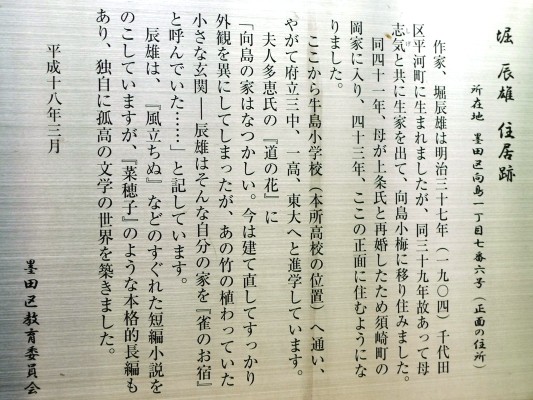 堀 辰雄 住居跡
所在地 墨田区向島一丁目七番六号(正面の住所)
作家、堀辰雄は明治三十七年(一九〇四)千代田
区平河町に生まれましたが、同三十九年故あって母
志気と共に生家を出て、向島小梅に移り住みました。
同四十一年、母が上条氏と再婚したため須崎町の
岡家に入り、四十三年、ここの正面に住むようにな
りました。
ここから牛島小学校(本所高校の位置)へ通い、
やがて府立三中、一高、東大へと進学しています。
夫人多恵氏の『道の花』に
「向島の家はなつかしい。今は建て直してすっかり
外観を異にしてしまったが、あの竹の植わっていた
小さな玄関――辰雄はそんな自分の家を『雀のお宿』
と呼んでいた……」と記しています。
辰雄は、『風立ちぬ』などのすぐれた短編小説を
のこしていますが、『菜穂子』のような本格的長編も
あり、独自に孤高の文学の世界を築きました。
平成十八年三月
墨田区教育委員会